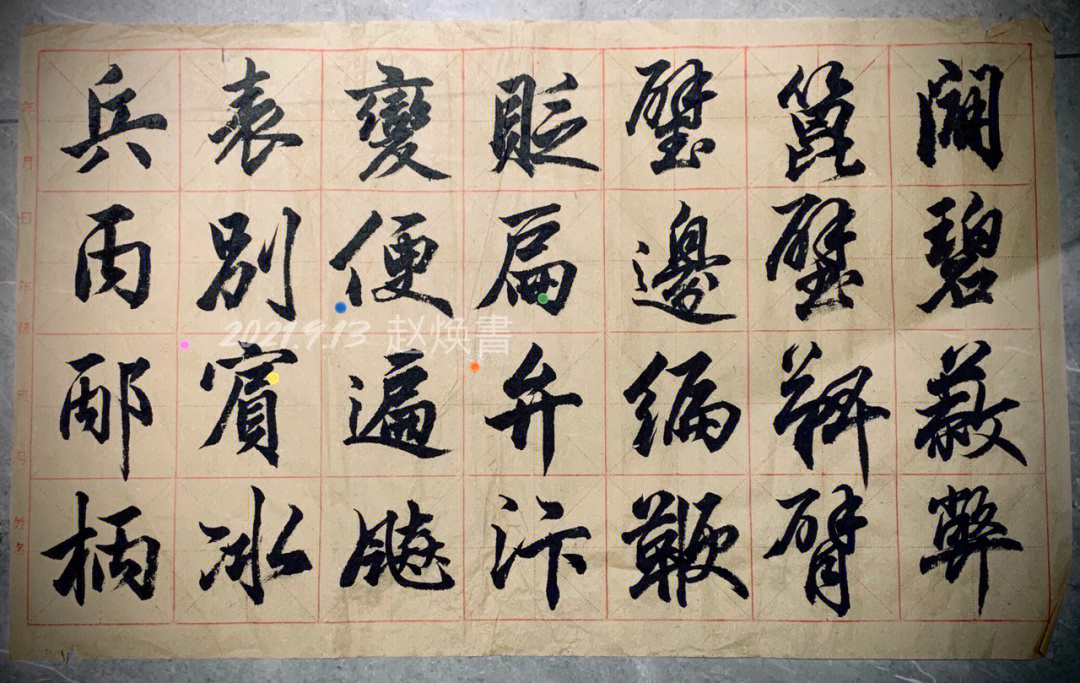 碧蔽弊
篦壁臂
璧邊編鞭
貶扁弁汴
變便遍
表別賓冰
兵丙邴柄
年 月 日 年级 班 号 姓名
2021.9.13 赵焕書